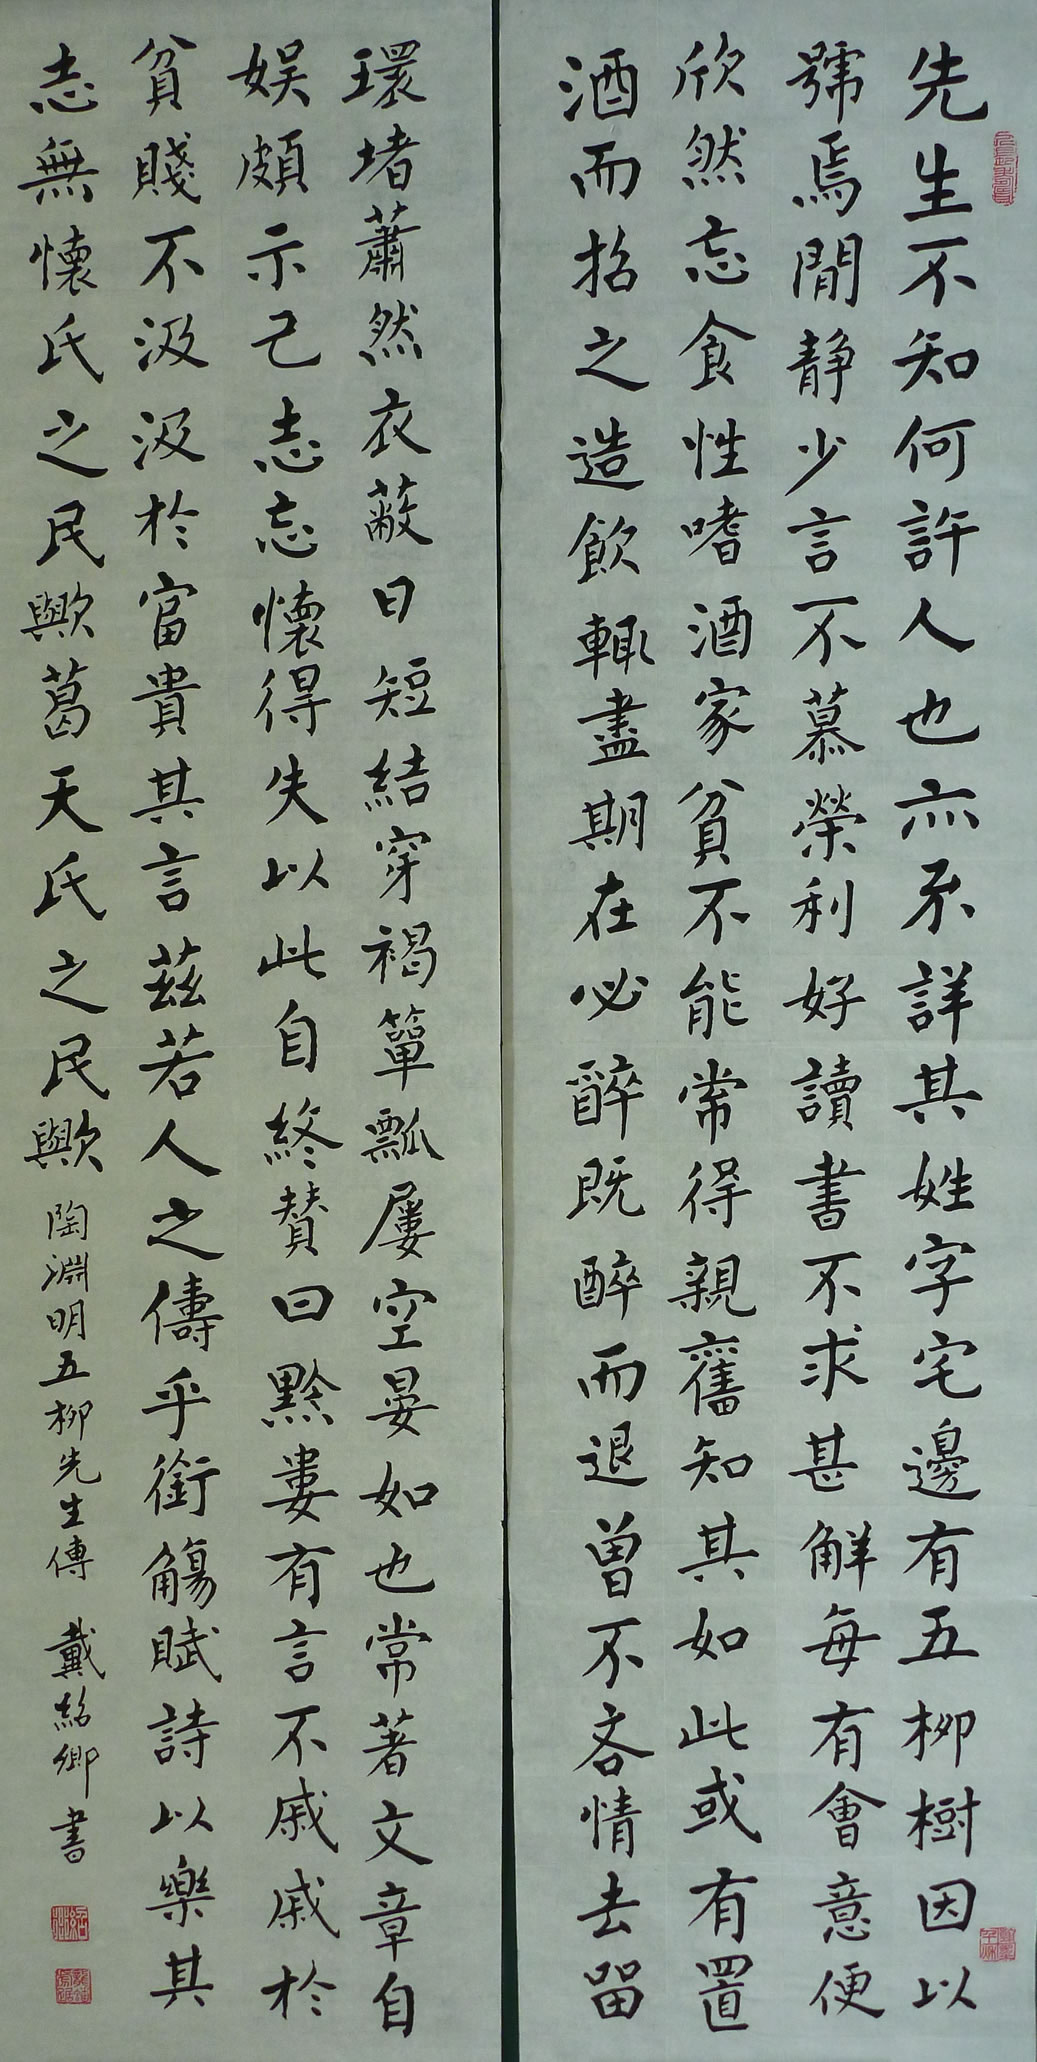 先生不知何許人也亦不詳其姓字宅邊有五柳樹因以
號焉閒静少言不慕榮利好讀書不求甚解每有會意便
欣然忘食性嗜酒家貧不能常得親舊知其如此或有置
酒而招之造飲輒盡期在必醉既醉而退曾不吝情去留
環堵蕭然衣蔽日短結穿褐簞瓢屢空晏如也常著文章自
娱頗示己志忘懷得失以此自終贊曰黔婁有言不戚戚於
貧賤不汲汲於富貴其言茲若人之儔乎銜觴賦詩以樂其
志無懷氏之民歟葛天氏之民歟 陶淵明五柳先生傳 戴紹卿書